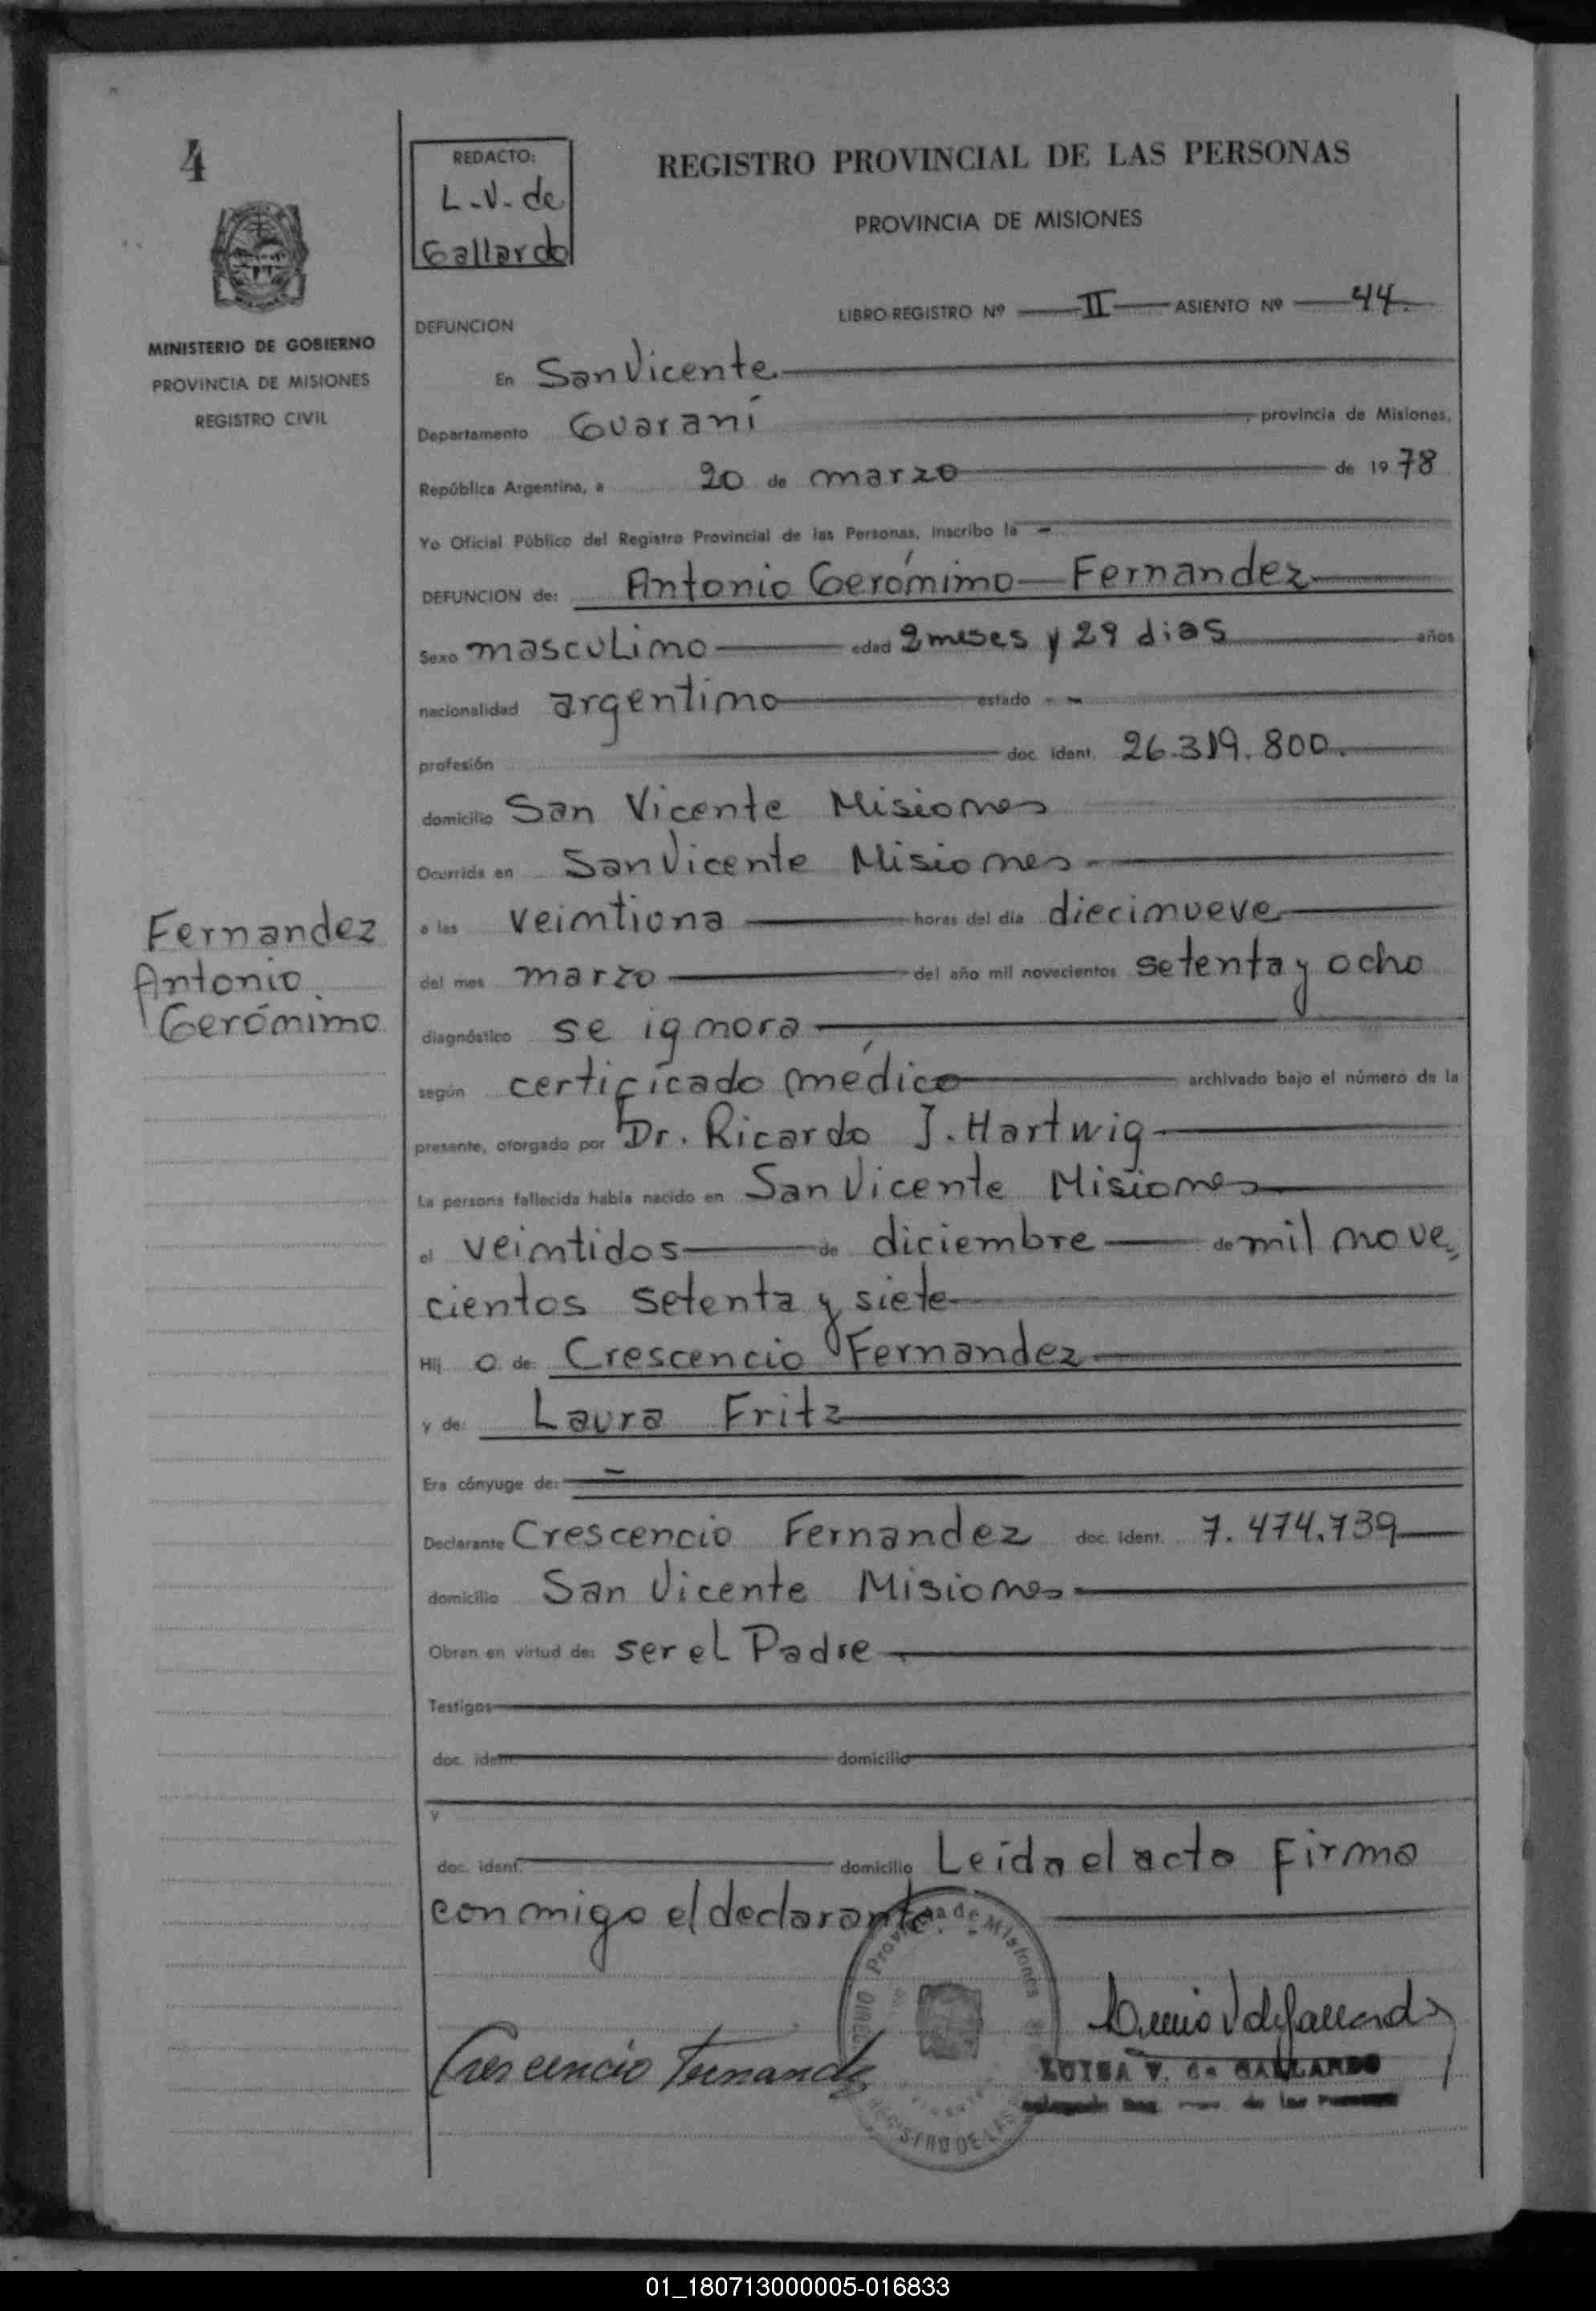 4
REDACTO:
L.V. de
Gallardo
REGISTRO PROVINCIAL DE LAS PERSONAS
PROVINCIA DE MISIONES
MINISTERIO DE GOBIERNO
PROVINCIA DE MISIONES
REGISTRO CIVIL
LIBRO-REGISTRO Nº II ASIENTO Nº 44.
DEFUNCION
En San Vicente
Departamento Guaraní, provincia de Misiones,
República Argentina, a 20 de marzo de 1978
Yo Oficial Público del Registro Provincial de las Personas, inscribo la
DEFUNCION de: Antonio Gerónimo Fernandez
Sexo masculino edad 2 meses y 29 dias años
nacionalidad argentino estado -
profesión doc. ident. 26.319.800.
domicilio San Vicente Misiones
Ocurrida en San Vicente Misiones
Fernandez
Antonio
Gerónimo
a las veintiuna horas del día diecinueve
del mes marzo del año mil novecientos setenta y ocho
diagnóstico se ignora
según certificado médico archivado bajo el número de la
presente, otorgado por Dr. Ricardo J. Hartwig
La persona fallecida había nacido en San Vicente Misiones
el veintidos de diciembre de mil nove
cientos setenta y siete
Hij o de: Crescencio Fernandez
y de: Laura Fritz
Era cónyuge de: -
Declarante Crescencio Fernandez doc. ident. 7.474.739
domicilio San Vicente Misiones
Obran en virtud de: ser el Padre
Testigos
doc. ident. domicilio
y
doc. ident. domicilio Leída el acto firmo
conmigo el declarante.
Provincia de Misiones
Crescencio Fernandez
LUISA V. de GALLARDO
01_180713000005-016833